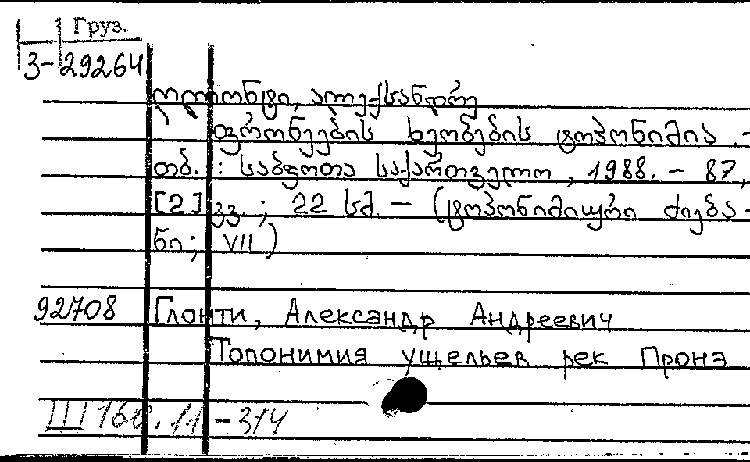 Груз.
3-29264
ღლონტი, ალექსანდრე
ფრონეების ხეობების ტოპონიმია .-
თბ. : საბჭოთა საქართველო, 1988. - 87,
[2] გვ. ; 22 სმ. - (ტოპონიმიური ძიება-
ნი ; VII)
92708 Глонти, Александр Андреевич
Топонимия ущельев рек Пронэ
-314